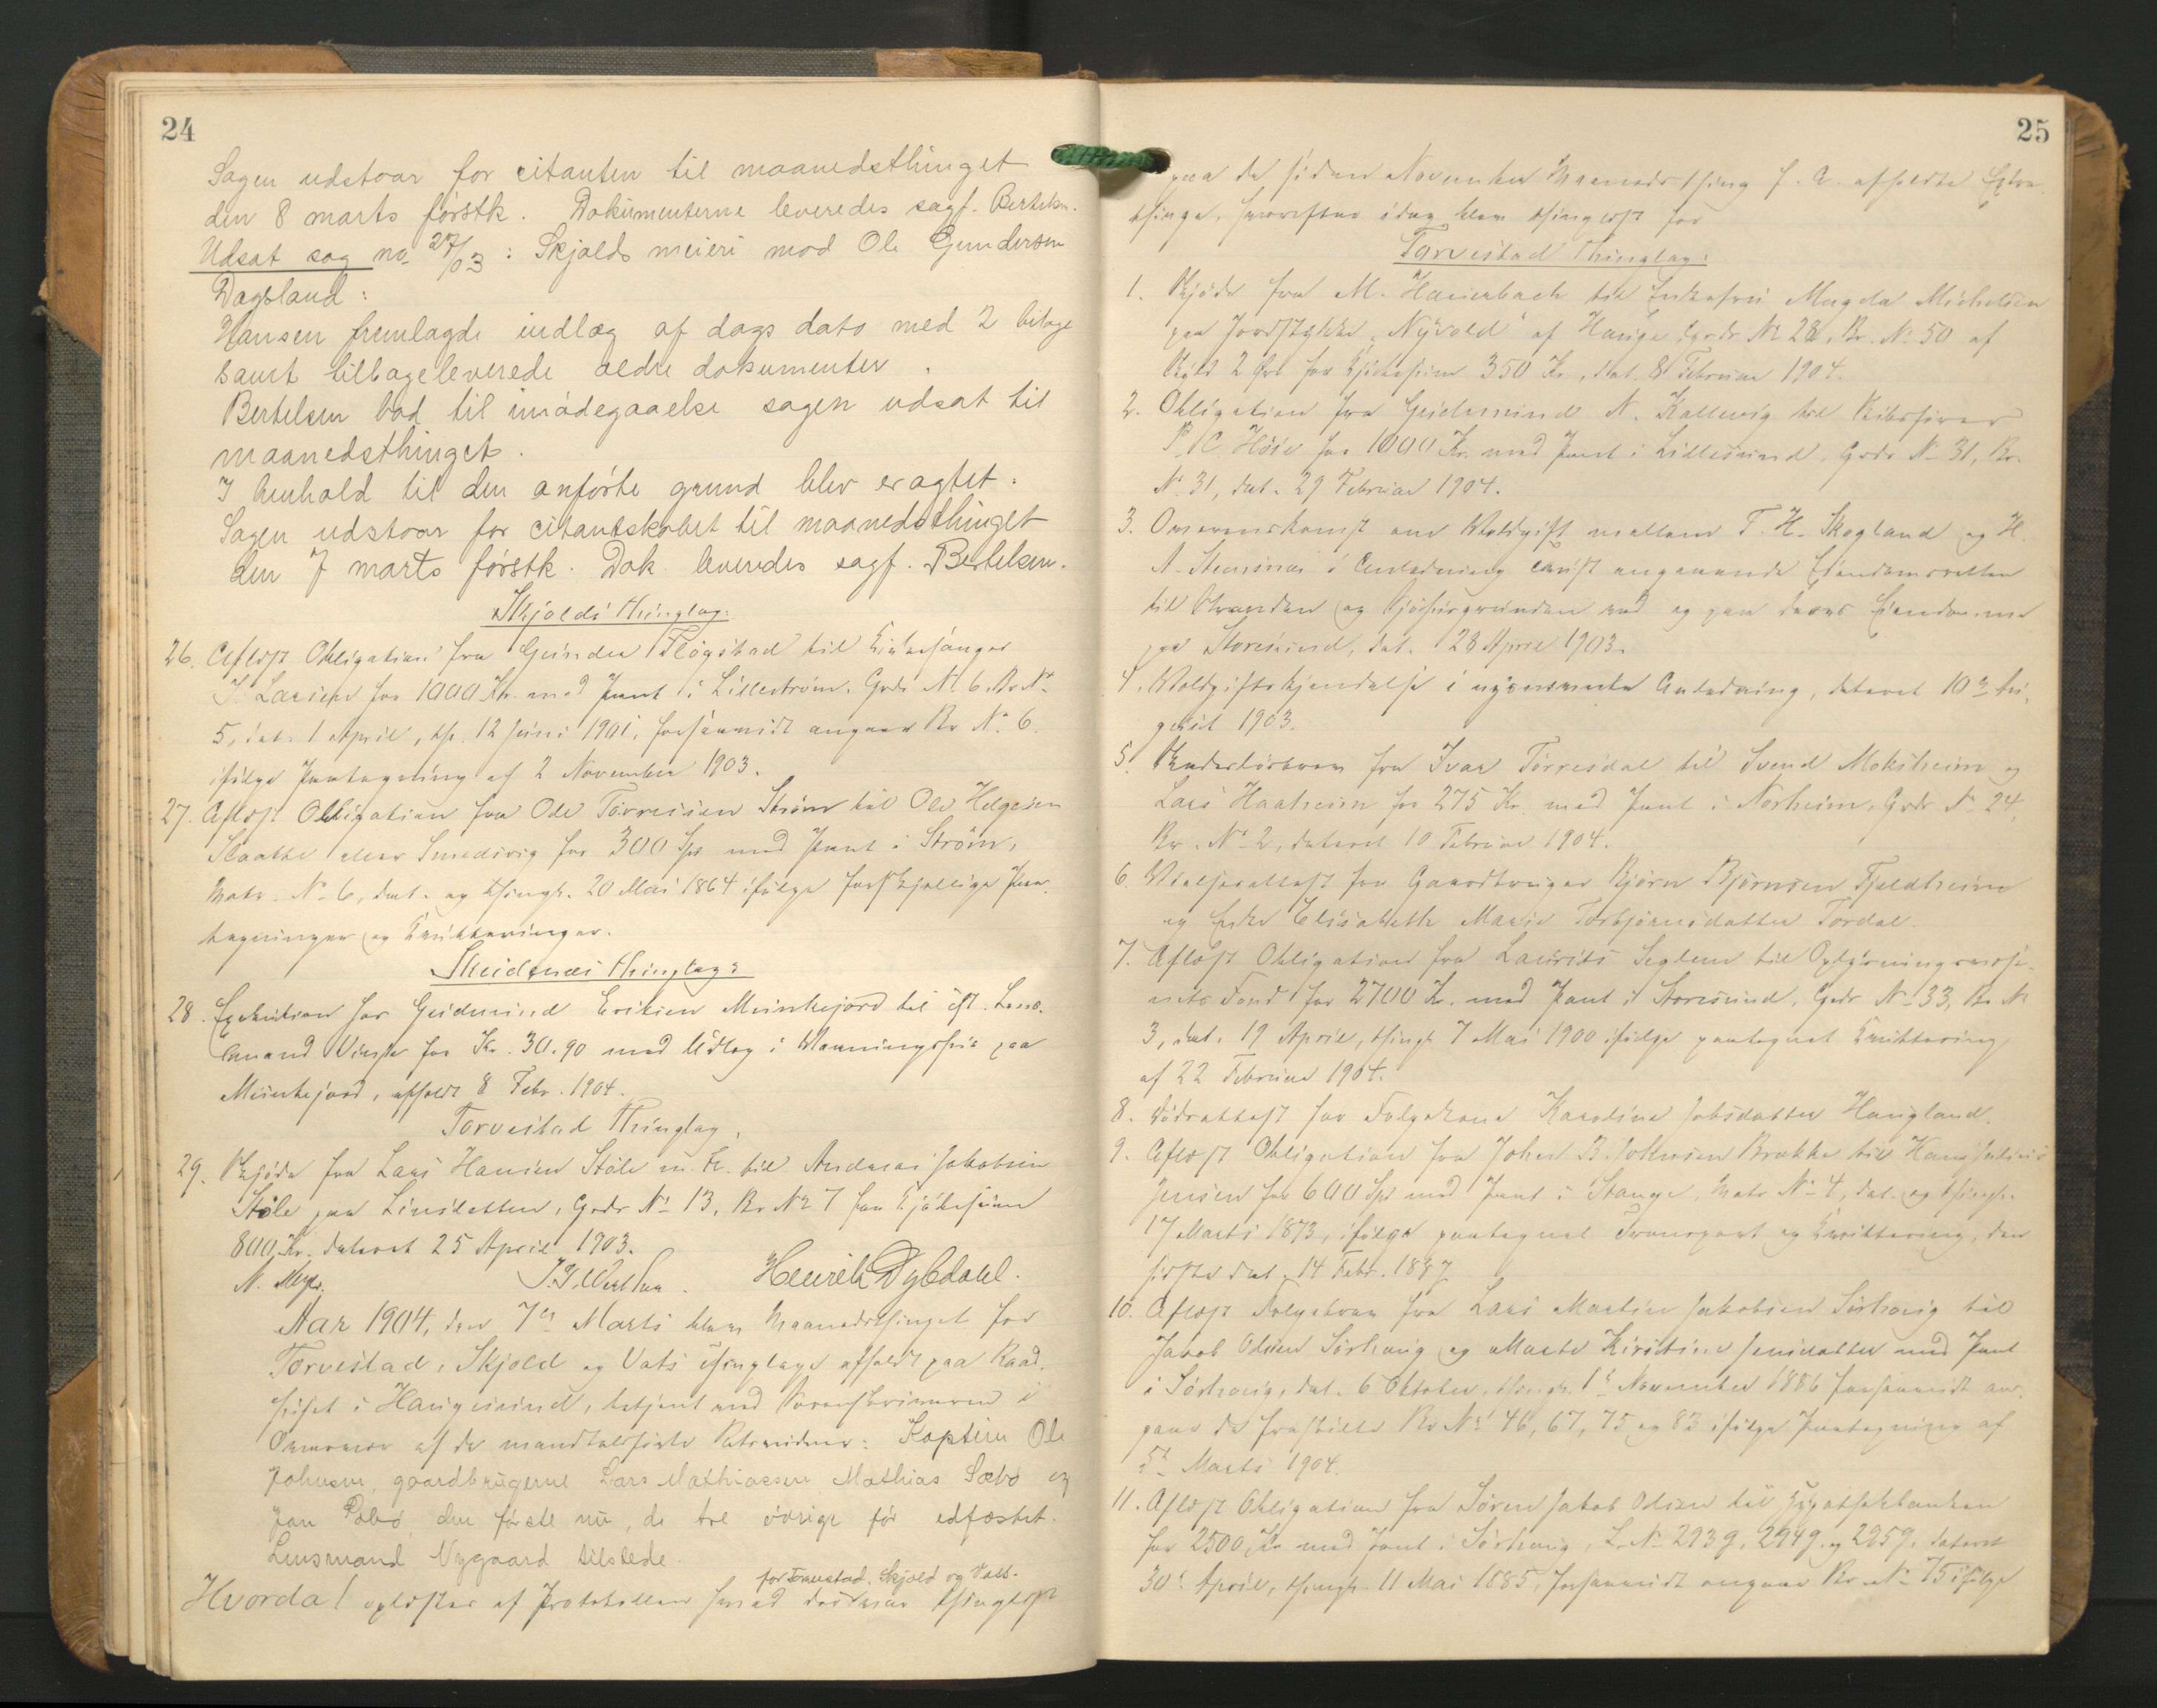 24
Sagen udstaar for citanten til maanedsthinget
den 8 marts førstk. Dokumenterne leveredes sagf. Bertelsen.
Udsat sag no 27/03: Skjolds meieri mod Ole Gundersen
Dagsland:
Hansen fremlagde indlæg af dags dato med 2 bilage
samt tilbageleverede ældre dokumenter.
Bertelsen bad til imødegaaelse sagen udsat til
maanedsthinget.
I henhold til den anførte grund blev eragtet:
Sagen udstaar for citantskabet til maanedsthinget
den 7 marts førstk. Dok. leveredes sagf. Bertelsen.
Skjolds Thinglag:
26. Aflyst Obligation fra Guinder Fløgstad til Kirkesanger
J. Larsen for 1000 Kr. med Pant i Lillestrøm, Grds No 6, Br No
5, dat. 1 April, th. 12 Juni 1901, forsaavidt angaar Br No 6
ifølge Paategning af 2 November 1903.
27. Aflyst Obligation fra Ole Torressen Strøm til Ole Helgesen
Slaatte eller Smedsvig for 300 Spd med Pant i Strøm,
Matr. No 6, dat. og thingl. 20 Mai 1864 ifølge forskjellige Paa-
tegninger og Kvitteringer.
Skudenæs Thinglag:
28. Exekution hos Gudmund Eriksen Munkejord til
for Kr. 30.90 med Udlæg i Vaaningshus paa
Munkejord, afholdt 8 Febr. 1904.
Torvestad Thinglag.
29. Skjøde fra Lars Hansen Ståle m. fl. til Andreas Jakobsen
Ståle paa Linesletten, Grds No 13, Br No 7 for Kjøbesum
800 Kr. dateret 25 April 1903.
Henrik Dybdahl.
Aar 1904, den 7de Marts blev Maanedsthinget for
Torvestad, Skjold og Vats Thinglage afholdt paa Raad-
huset i Haugesund, betjent med Sorenskriveren i
Overvær af de mandtalsførte Retsvidner: Kaptein Ole
Johnsen, gaardbrugerne Lars Mathiassen, Mathias Sæbø og
Jan Sæbø, den første nu, de tre øvrige før edfæstet.
Lensmand Nygaard tilstede.
for Torvestad, Skjold og Vats.
Hvorda! oplystes af Protokollen hvad der var thinglyst
25
paa de siden November Maanedsthing f. A. afholdte Extra-
thinge, hvorefter idag blev thinglyst for
Torvestad Thinglag:
1. Skjøde fra M. Hauerbach til Enkefru Magda Michelsen
paa Jordstykke "Nyvold" af Hauge Grds No 28, Br. No 50 af
Skyld 2 Øre for Kjøbesum 350 Kr., dat. 8 Februar 1904.
2. Obligation fra Gudmund N. Kallevig til Skibsfører
P. C. Høie for 1000 Kr. med Pant i Lillesund, Grds No 31, Br.
No 31, dat. 29 Februar 1904.
3. Overenskomst om Voldgift mellem T. H. Skogland og H.
N. Stensnes i Anledning Tvist angaaende Eiendomsretten
til Stranden og Sjøhusgrunden ved og paa deres Eiendomme
paa Storesund, dat. 28 April 1903.
4. Voldgiftskjendelse i nysnævnte Anledning, dateret 10de Au-
gust 1903.
5. Panteobligation fra Ivar Torresdal til Svend Moksheim og
Lars Haaheim for 275 Kr. med Pant i Norheim, Grds No 24,
Br. No 2, dateret 10 Februar 1904.
6. Vielsesattest for Gaardbruger Bjørn Bjørnsen Fjeldheim
og Enke Elisabeth Marie Torbjørnsdatter Tordal.
7. Aflyst Obligation fra Laurits Seglem til Oplysningsvæse-
nets Fond for 2700 Kr. med Pant i Storesund, Grds No 33, Br No
3, dat. 19 April, thingl. 7 Mai 1900 ifølge paategnet Kvittering
af 22 Februar 1904.
8. Dødsattest for Folgekone Karoline Jobsdatter Haugland.
9. Aflyst Obligation fra John B. Johnsen Brække til Hans Julius
Jensen for 600 Spd med Pant i Stange, Matr No 4, dat. og thingl.
17 Marts 1873, ifølge paategnet Transport og Kvittering, den
sidste dat. 14 Febr. 1887
10. Aflyst Folgebrev fra Lars Martin Jakobsen Sørhaug til
Jakob Odsen Sørhaug og Marte Kirstine Jensdatter med Pant
i Sørhaug, dat. 6 Oktober, thingl. 1ste November 1886 forsaavidt an-
gaar de fraskilte Br No 46, 67, 75 og 83 ifølge Paategning af
5te Marts 1904.
11. Aflyst Obligation fra Søren Jakob Odsen til Hypothekbanken
for 2500 Kr. med Pant i Sørhaug, L. No 293g, 294g og 295g, dateret
30te April, thingl. 11 Mai 1885, forsaavidt angaar Br. No 75 ifølge